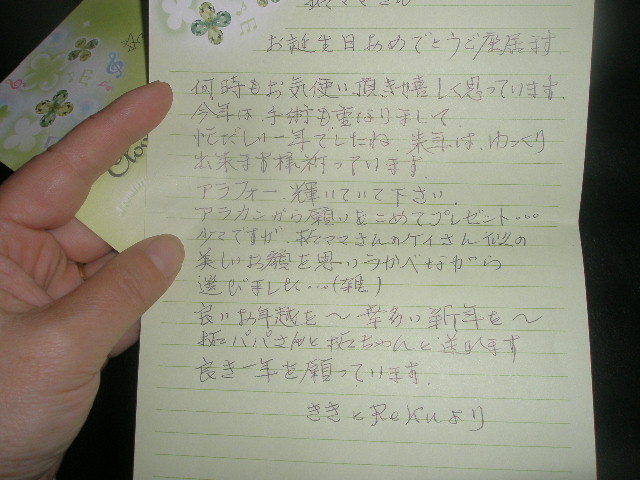 ママさん
お誕生日おめでとうご座居ます
何時もお気使い頂き嬉しく思っています。
今年は、手術も重なりまして
忙だしい一年でしたね 来年は、ゆっくり
出来ます様祈っています。
アラフォー、輝いていて下さい。
アラカンから願いをこめてプレゼント…
少々ですが、ママさんのケイさん似の
美しいお顔を思いうかべながら
選びました…(雑)
良いお年越を〜 幸多い新年を〜
パパさんと ちゃんと送ります
良き一年を願っています。
ききとReKuより